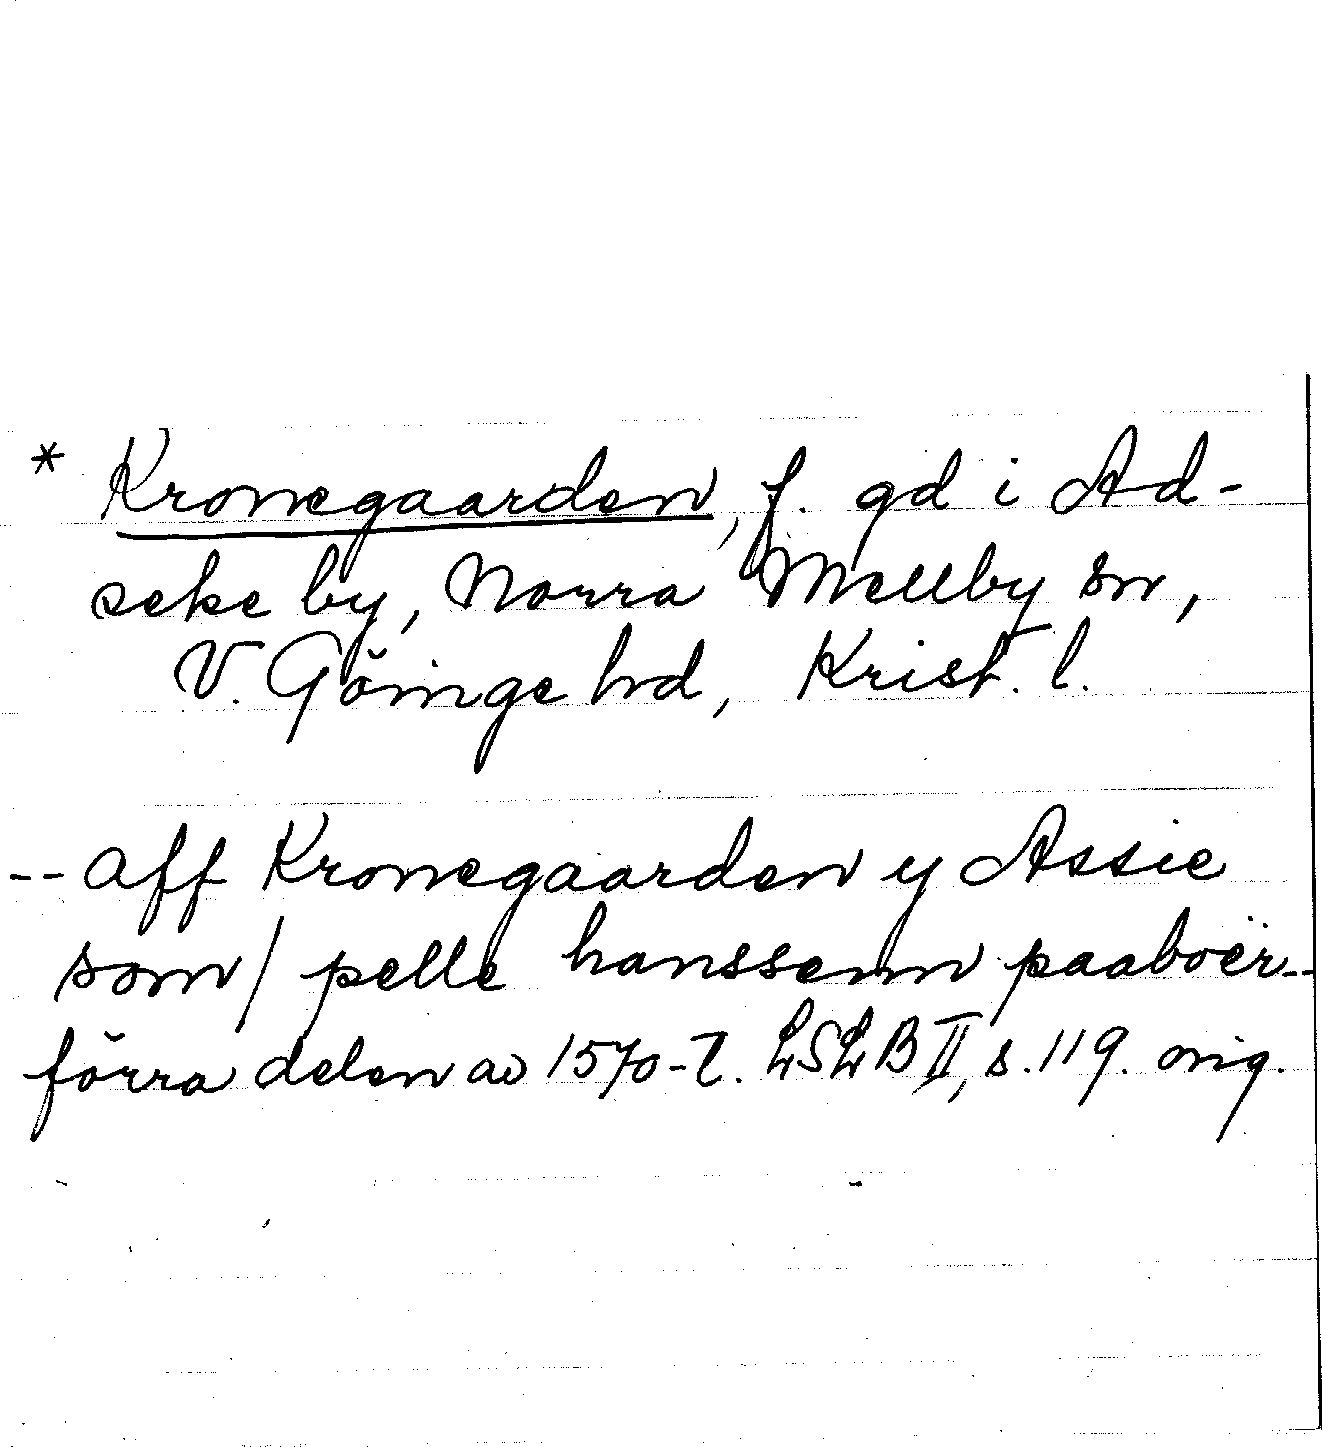 * Kronegaarden, f. gd i Ad-
seke by, Norra Mellby sn,
V. Göinge hd, Krist. l.
-- aff Kronegaarden y Assie
som / pelle hanssenn paaboër--
förra delen av 1570-t. LSLB II, s. 119. orig.